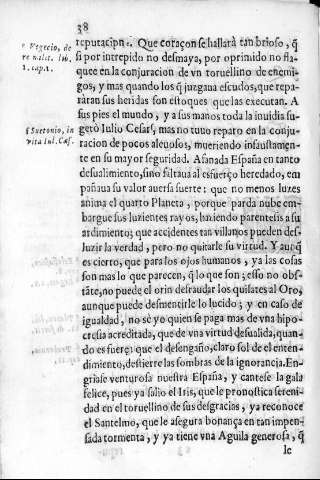 38
e Vegecio, de
re milit. lib.
1. cap. 1.
f Suetonio, in
vita Iul. Cæs.
reputacion e. Que coraçon se hallarà tan brioso, q̃
si por intrepido no desmaya, por oprimido no fla-
quee en la conjuracion de vn toruellino de enemi-
gos, y mas quando los q̃ juzgaua escudos, que repa-
raran sus heridas son estoques que las executan. A
sus pies el mundo, y a sus manos toda la inuidia su-
getò Iulio Cesar f, mas no tuuo reparo en la conju-
racion de pocos aleuosos, muriendo infaustamen-
te en su mayor seguridad. Afanada España en tanto
desualimiento, sino faltaua al esfuerço heredado, em
pañaua su valor auersa suerte: que no menos luzes
anima el quarto Planeta, porque parda nube em-
bargue sus luzientes rayos, haziendo parentesis a su
ardimiento; que accidentes tan villanos pueden des-
luzir la verdad, pero no quitarle su virtud. Y aunq̃
es cierto, que para los ojos humanos, ya las cosas
son mas lo que parecen, q̃ lo que son; esso no obs-
tãte, no puede el orin defraudar los quilates al Oro,
aunque puede desmentirle lo lucido; y en caso de
igualdad, no sè yo quien se paga mas de vna hipo-
cresia acreditada, que de vna virtud desualida, quan-
do es fuerça que el desengaño, claro sol de el enten-
dimiento, destierre las sombras de la ignorancia. En-
griase venturosa nuestra España, y cantese la gala
felice, pues ya salio el Iris, que le pronostica sereni-
dad en el toruellino de sus desgracias, ya reconoce
el Santelmo, que le assegura bonança en tan impen-
sada tormenta, y ya tiene vna Aguila generosa, q̃
le